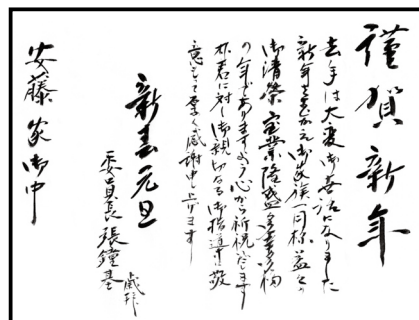 謹賀新年
去年は大変御世話になりました
新年をむかえ御家族一同様益々の
御清栄宝業隆盛多幸多福
の年でありますよう心から祈祝いたします
林君に対し御親切なる御指導に敬
意をもって厚く感謝申し上げます
新春元旦
委員長 張鐘基 戯拝
安藤家御中